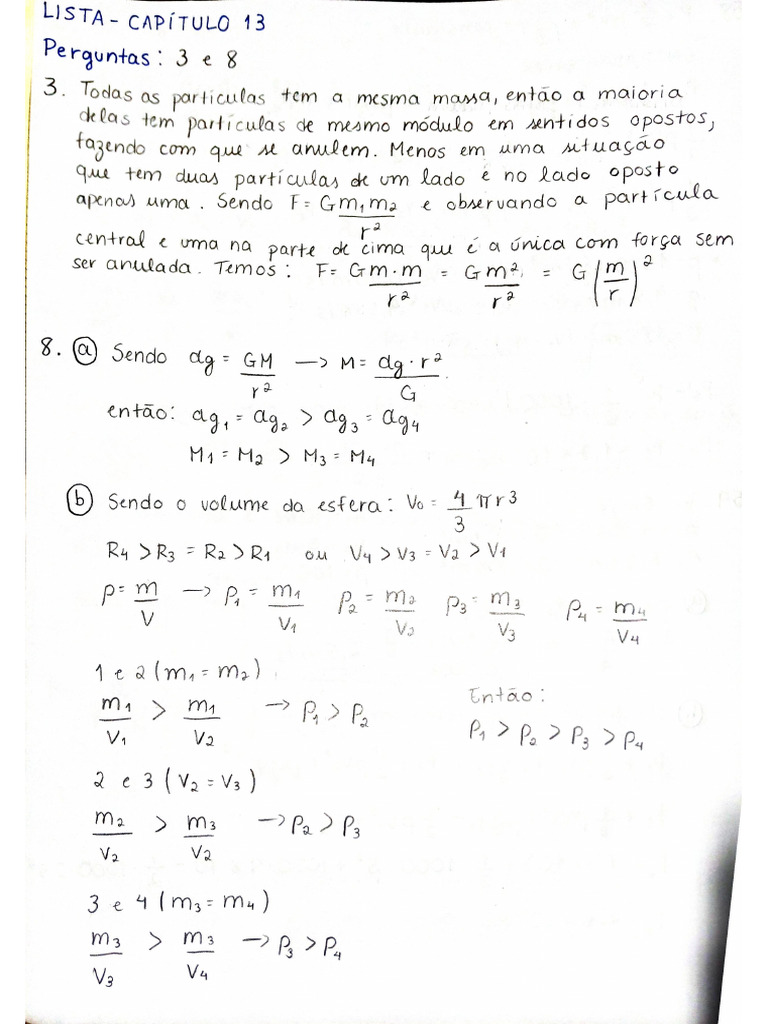 LISTA - CAPÍTULO 13
Perguntas: 3 e 8
3. Todas as partículas tem a mesma massa, então a maioria
delas tem partículas de mesmo módulo em sentidos opostos,
fazendo com que se anulem. Menos em uma situação
que tem duas partículas de um lado é no lado oposto
apenas uma. Sendo F = G m₁m₂ / r² e observando a partícula
central e uma na parte de cima que é a única com força sem
ser anulada. Temos: F = G m·m / r² = G m² / r² = G (m / r)²
8. (a) Sendo ag = GM / r² → M = ag · r² / G
então: ag₁ = ag₂ > ag₃ = ag₄
M₁ = M₂ > M₃ = M₄
(b) Sendo o volume da esfera: V₀ = 4/3 π r³
R₄ > R₃ = R₂ > R₁ ou V₄ > V₃ = V₂ > V₁
ρ = m / V → ρ₁ = m₁ / V₁ ρ₂ = m₂ / V₂ ρ₃ = m₃ / V₃ ρ₄ = m₄ / V₄
1 e 2 (m₁ = m₂)
m₁ / V₁ > m₁ / V₂ → ρ₁ > ρ₂
Então:
ρ₁ > ρ₂ > ρ₃ > ρ₄
2 e 3 (V₂ = V₃)
m₂ / V₂ > m₃ / V₂ → ρ₂ > ρ₃
3 e 4 (m₃ = m₄)
m₃ / V₃ > m₃ / V₄ → ρ₃ > ρ₄